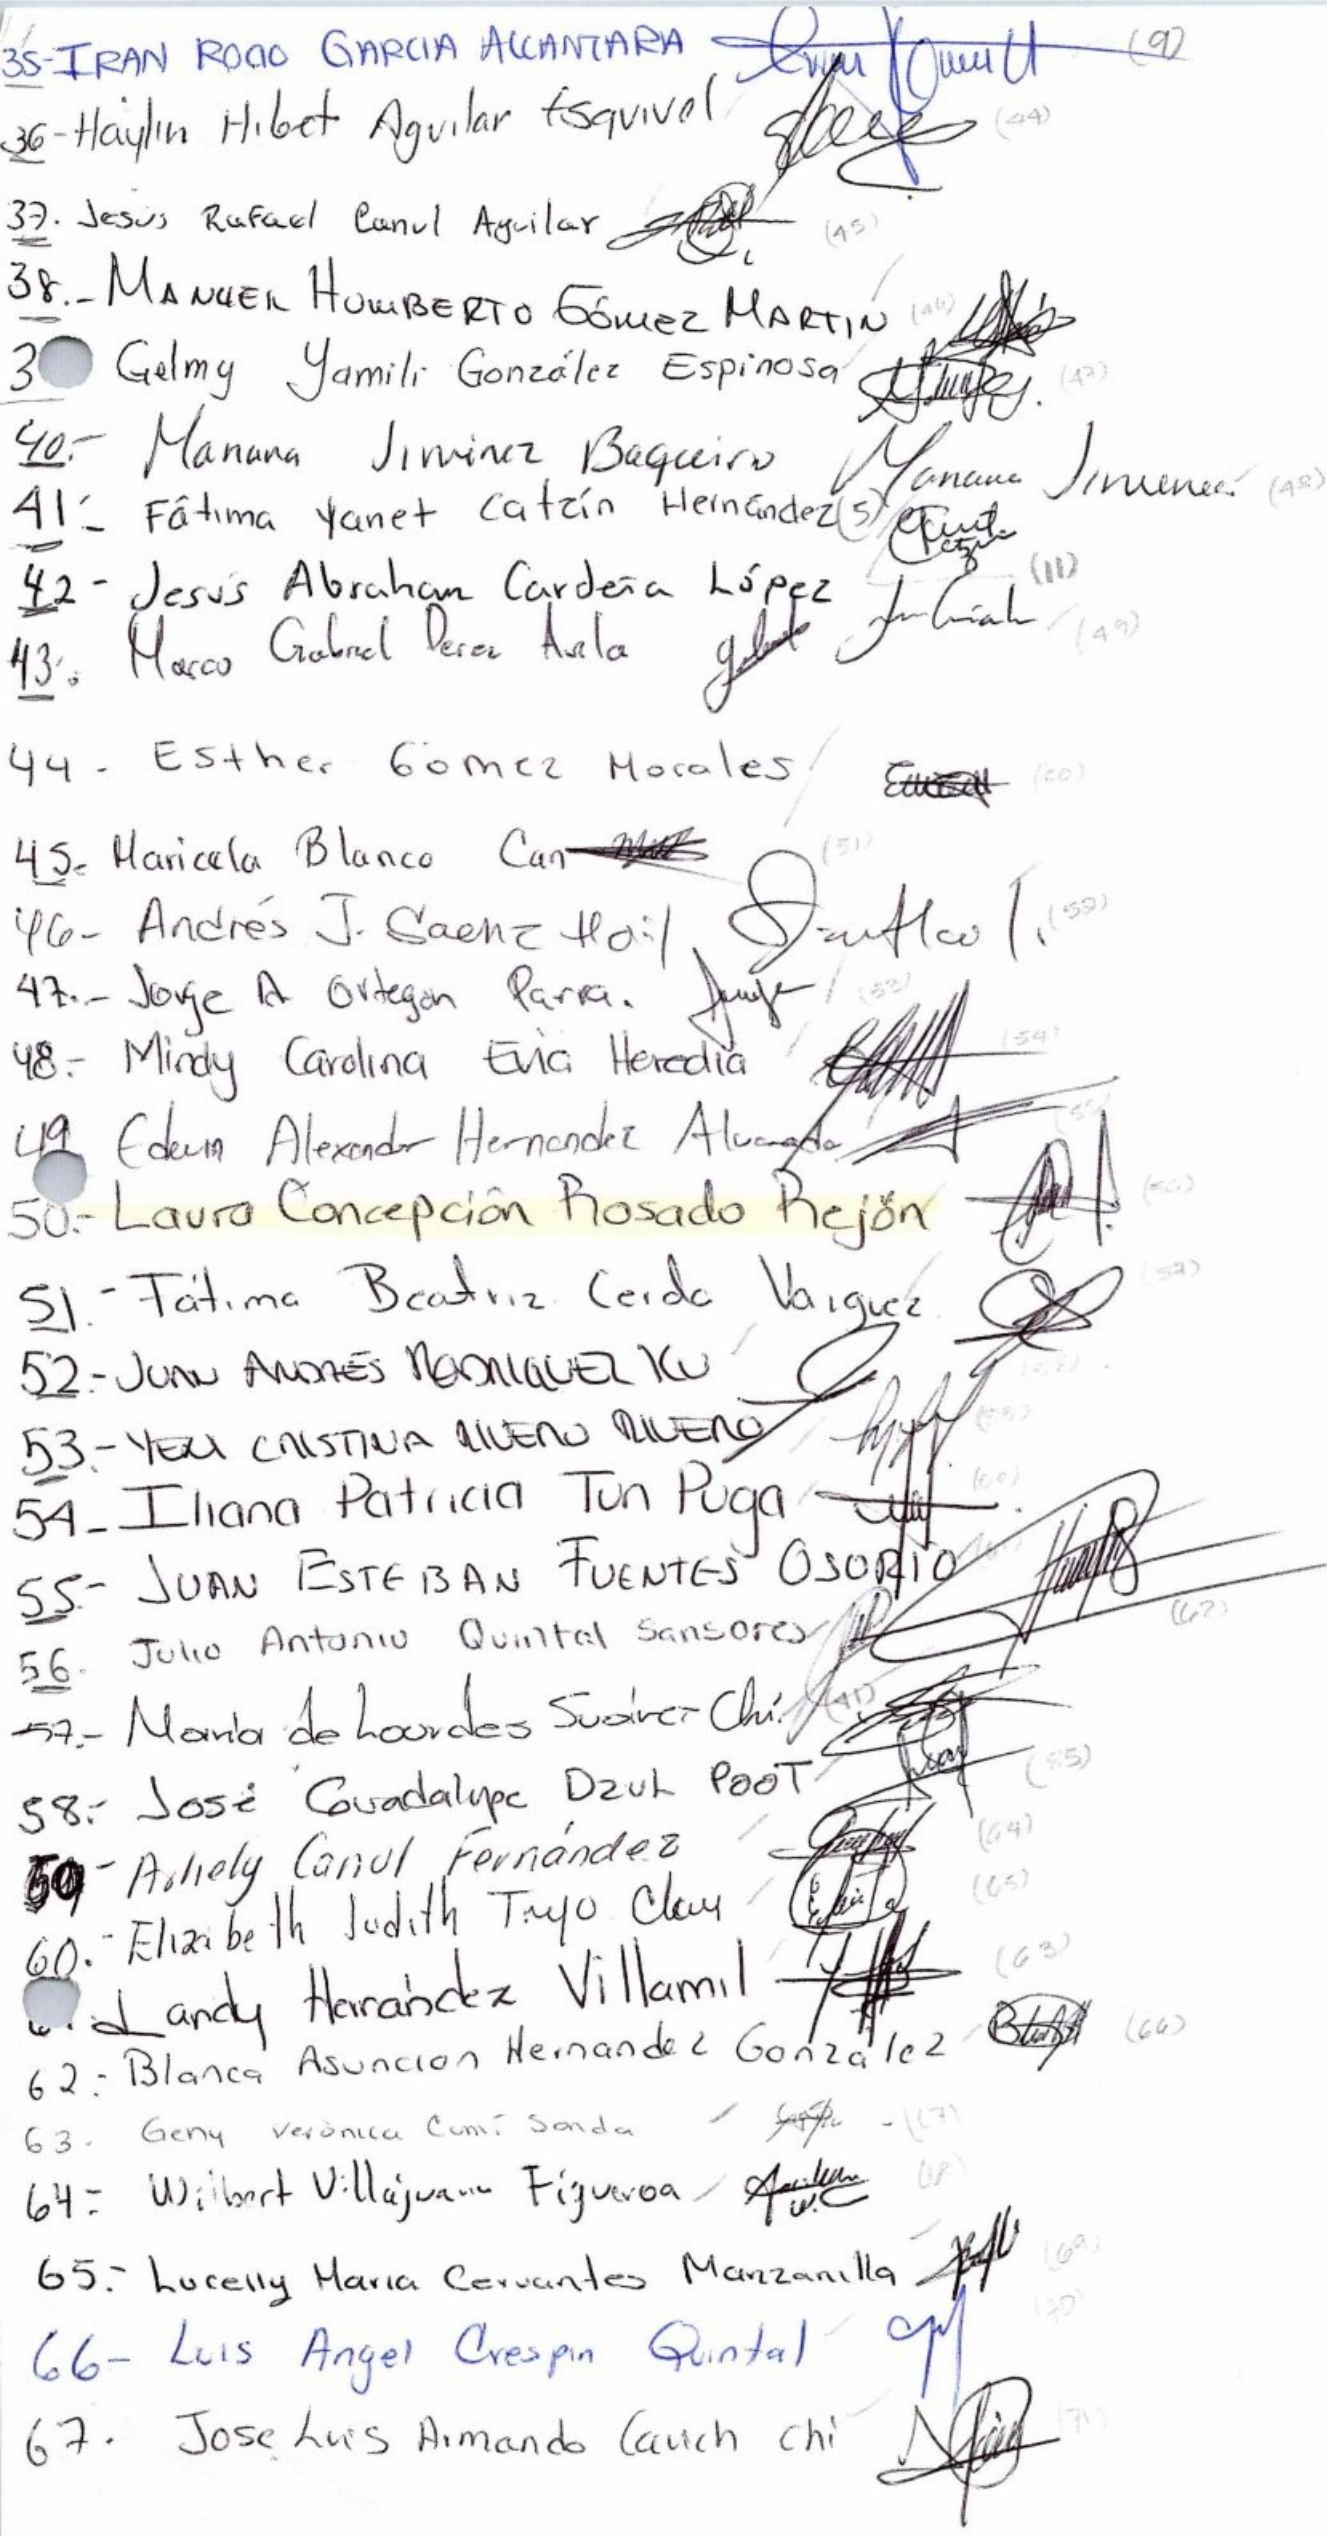 35- IRAN ROCIO GARCIA ALCANTARA (9)
36- Haylin Hibet Aguilar Esquivel (44)
37. Jesus Rafael Canul Aguilar (45)
38.- MANUEL HUMBERTO GÓMEZ MARTIN (46)
3 Gelmy Yamili González Espinosa (47)
40.- Mariana Jiménez Baqueiro Mariana Jimenez (48)
41.- Fátima Yanet Catzín Hernández (5)
42- Jesús Abraham Cardeña López (11)
43.- Marco Gabriel Perez Avila (49)
44- Esther Gómez Morales (50)
45- Maricela Blanco Can (51)
46- Andrés J. Saenz Hoil (52)
47.- Jorge A Ortegon Parra. (53)
48.- Mindy Carolina Evia Heredia (54)
49 Edwin Alexander Hernandez Alvarado (55)
50.- Laura Concepción Rosado Rejón (56)
51.- Fátima Beatriz Cerda Vazquez (57)
52.- JUAN ANDRÉS RODRIGUEZ KU (58)
53.- YENI CRISTINA RIVERO RIVERO (59)
54- Iliana Patricia Tun Puga (60)
55- JUAN ESTEBAN FUENTES OSORIO (61)
56. Julio Antonio Quintal Sansores (62)
57.- María de Lourdes Suárez Chi. (41)
58.- José Guadalupe Dzul Poot (35)
59- Arhely Canul Fernández (64)
60.- Elizabeth Judith Trujo Clau (65)
Landy Hernández Villamil (63)
62.- Blanca Asuncion Hernandez González (66)
63. Geny Verónica Cumí Sonda (67)
64- Wilbert Villajuana Figueroa (68)
65.- Lucelly Maria Cervantes Manzanilla (69)
66- Luis Angel Crespin Quintal (70)
67. Jose Luis Armando Cauich Chi (71)